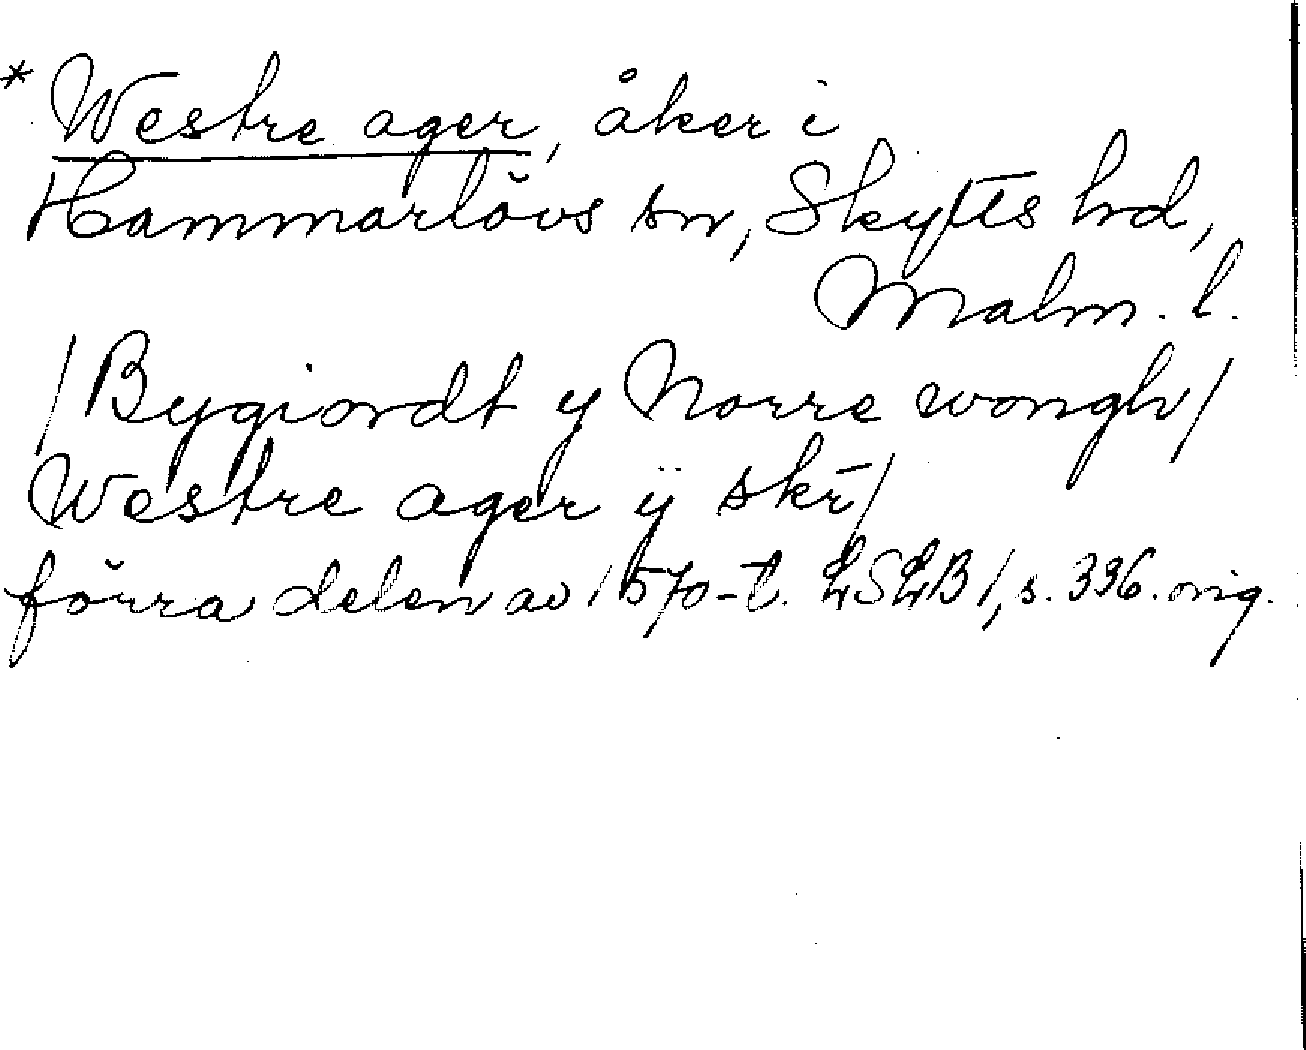 * Westre ager, åker i
Hammarlövs sn, Skytts hd,
Malm. l.
/Bygiordt y Norre wongh/
Westre ager ÿ skr̄/
förra delen av 1570-t. LSLB 1, s. 336. orig.